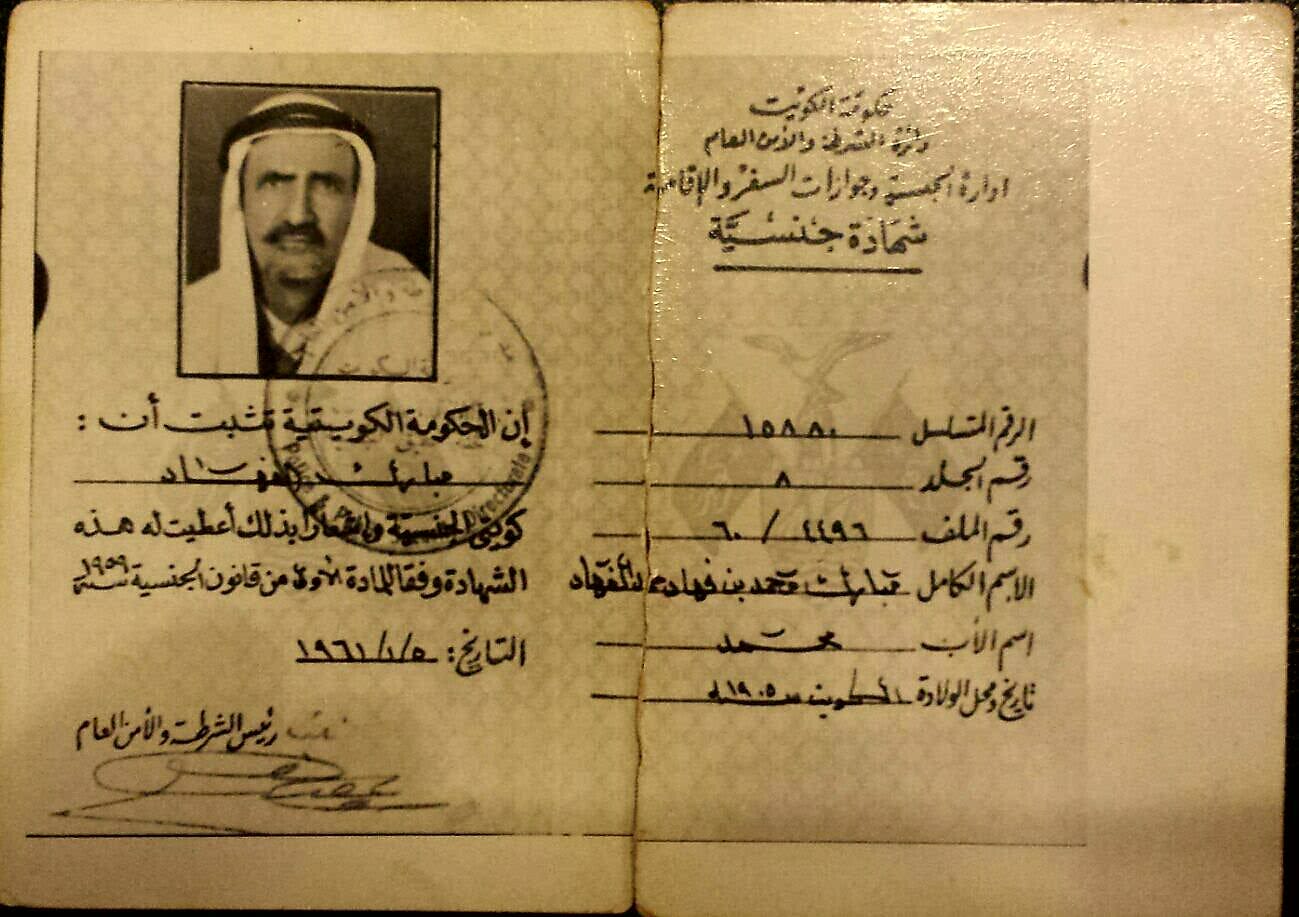 حكومة الكويت
دائرة الشرطة والأمن العام
ادارة الجنسية وجوازات السفر والإقامة
شهادة جنسيّة
الرقم المتسلسل ١٥٨٨٠
رقم الجلد ٨
رقم الملف ٤٤٩٦ / ٦٠
الاسم الكامل مبارك محمد بن فهاد الفهاد
اسم الأب محمد
تاريخ ومحل الولادة الكويت سنة ١٩٠٥
إن الحكومة الكويتية تثبت أن :
مبارك الفهاد
كويتي الجنسية وإشعارا بذلك أعطيت له هذه
الشهادة وفقا للمادة الأولى من قانون الجنسية سنة ١٩٥٩
التاريخ : ١٩٦١/١/٥
رئيس الشرطة والأمن العام
Directorate